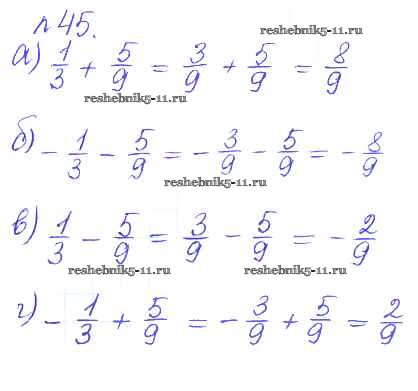 №45.
reshebnik5-11.ru
а) 1/3 + 5/9 = 3/9 + 5/9 = 8/9
reshebnik5-11.ru
б) - 1/3 - 5/9 = - 3/9 - 5/9 = - 8/9
reshebnik5-11.ru
в) 1/3 - 5/9 = 3/9 - 5/9 = - 2/9
reshebnik5-11.ru reshebnik5-11.ru
г) - 1/3 + 5/9 = - 3/9 + 5/9 = 2/9